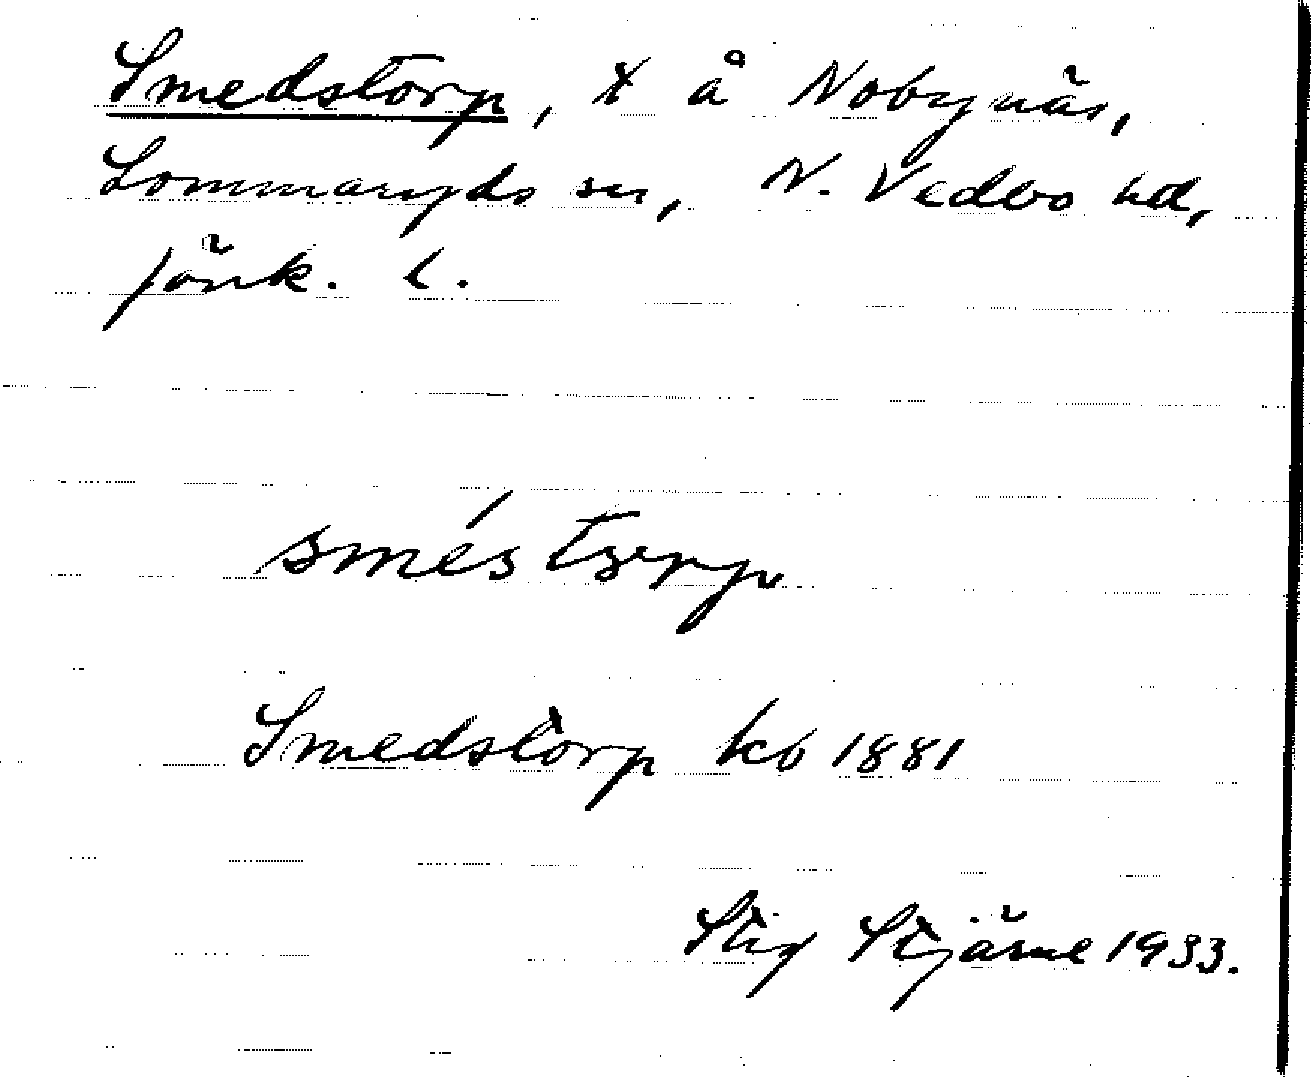 Smedstorp, t å Nobynäs,
Lommaryds sn, N. Vedbo hd,
Jönk. l.
Smedstorp kb 1881
Stig Stjärne 1933.